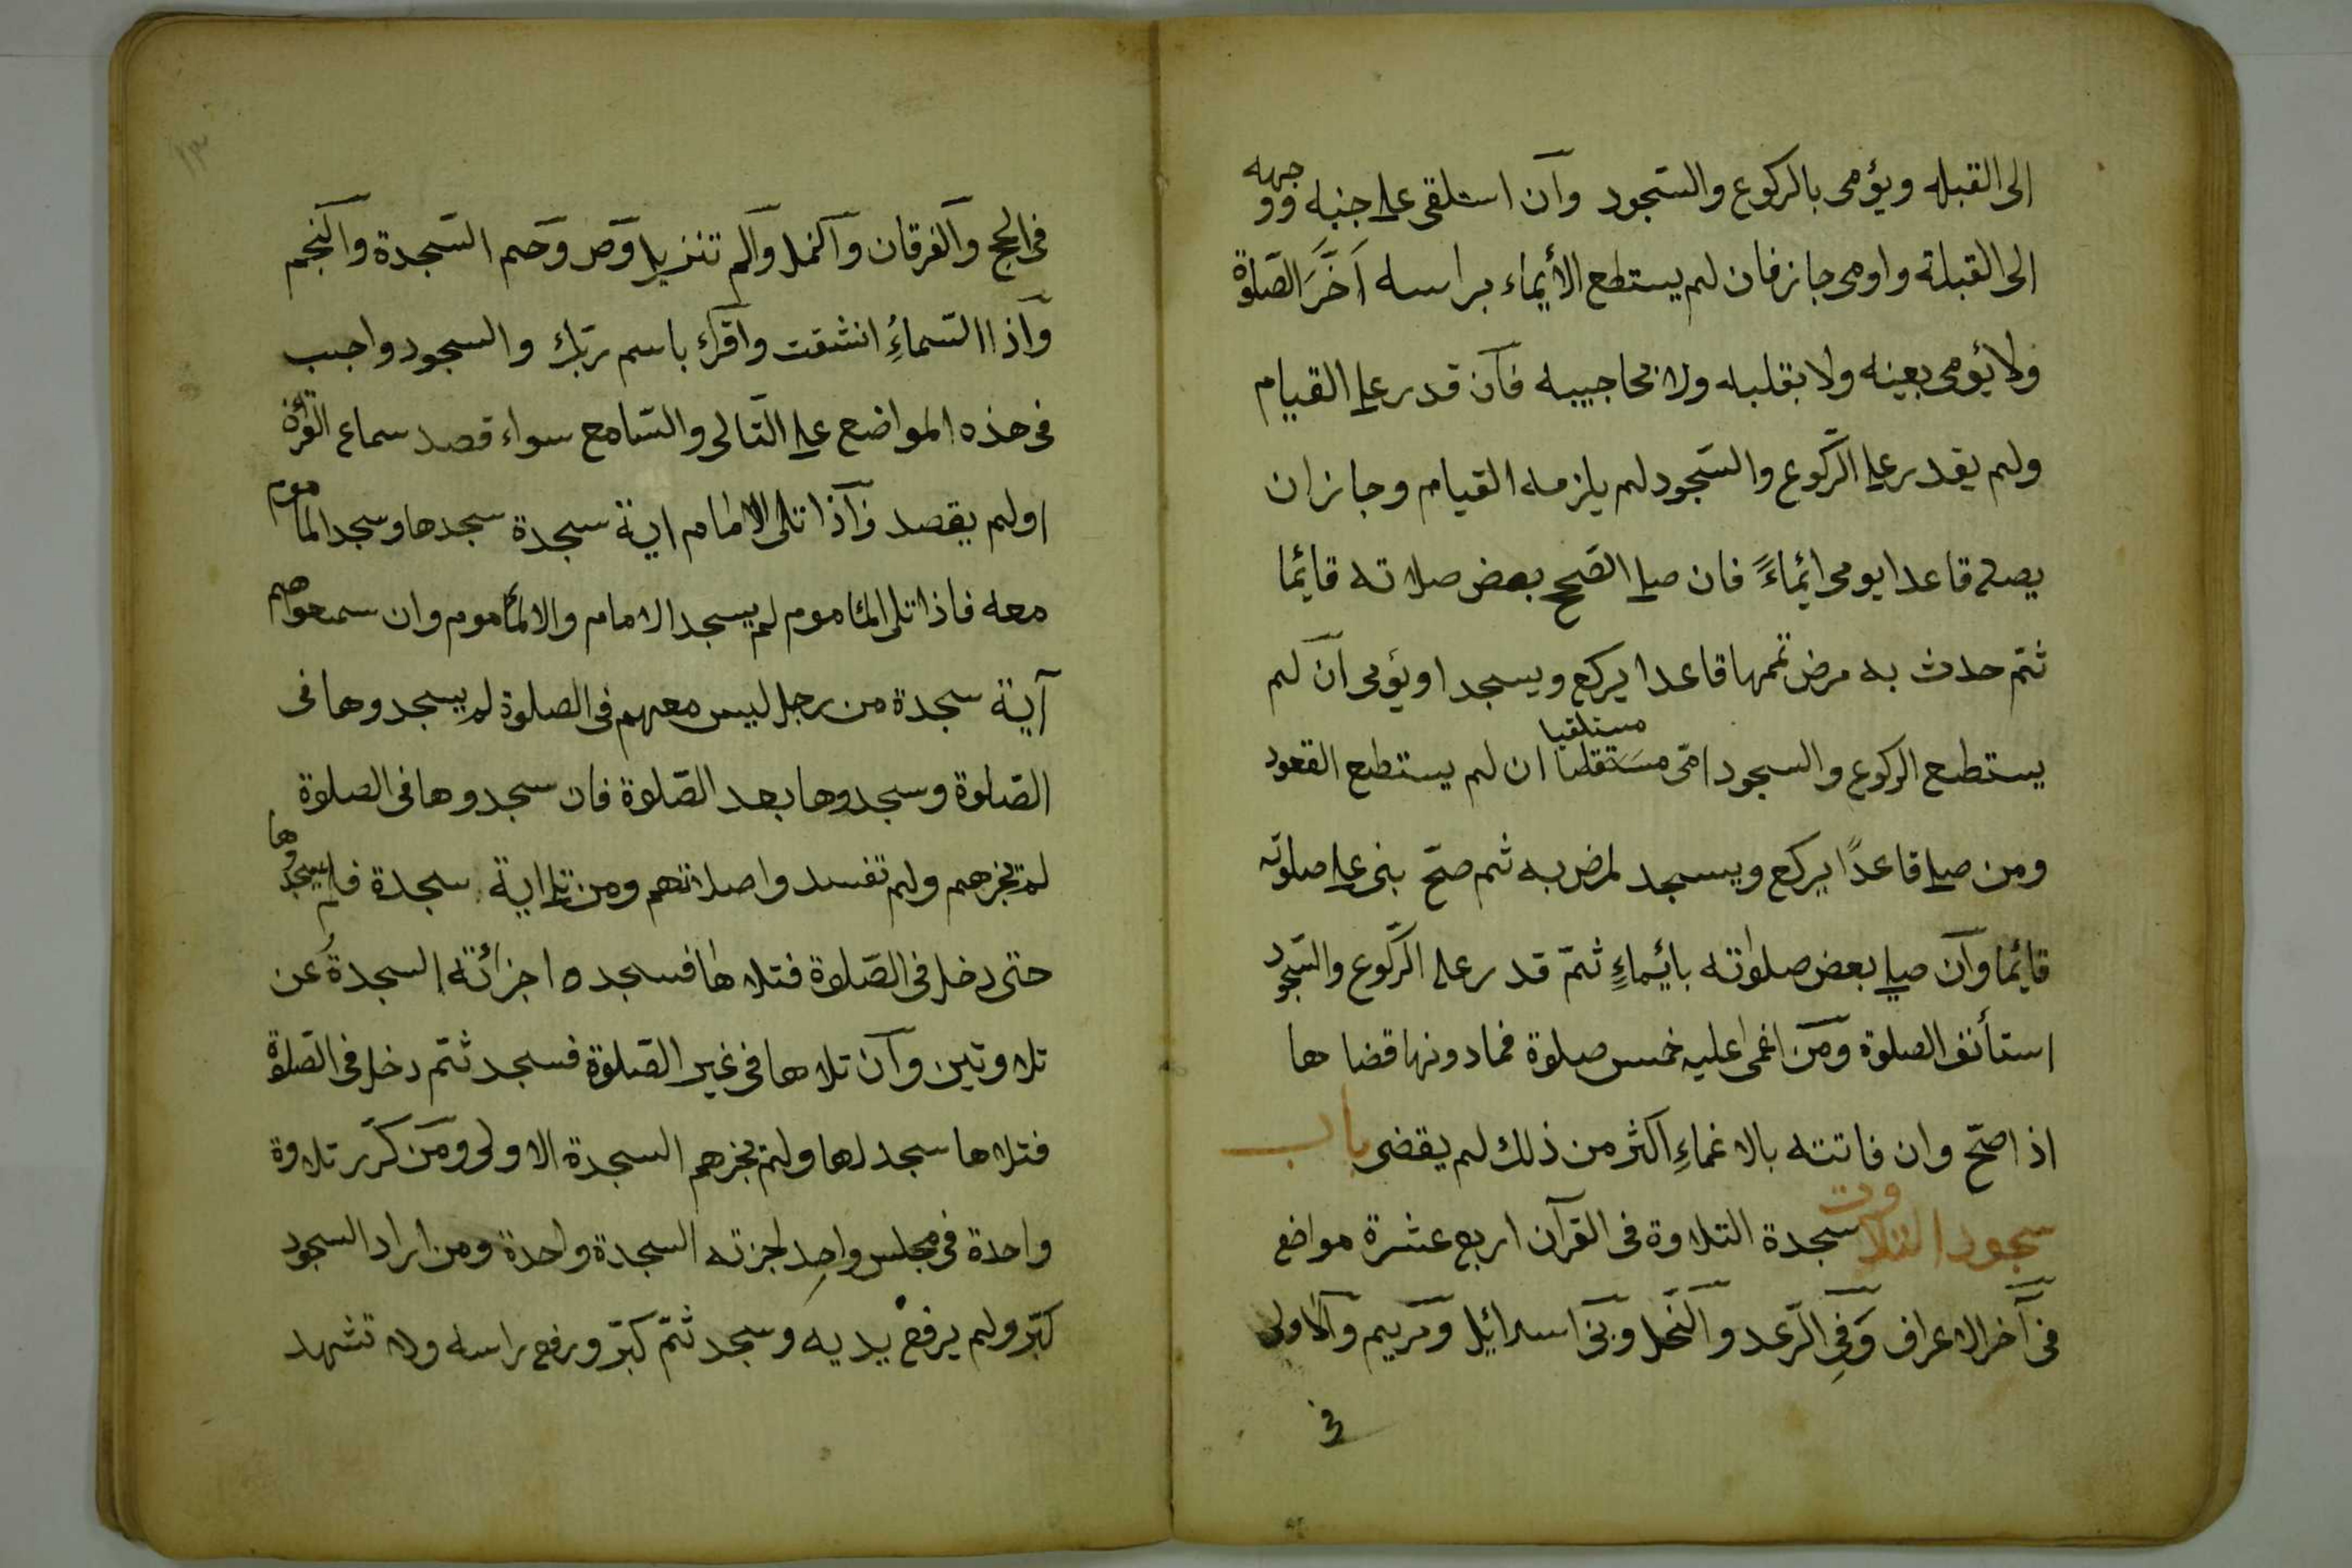 الى القبله ويؤمى بالركوع والسّجود وان استلقى على جنبه ووجهه
الى القبلة واومى جاز فان لم يستطع الأيماء براسه اَخَّرَ الصّلوة
ولا يؤمى بعينه ولا بقلبه ولا بحاجبيه فان قدر على القيام
ولم يقدر على الرّكوع والسّجود لم يلزمه القيام وجاز ان
يصلى قاعدا يومى ائماءً فان صلى الصّحيح بعض صلاته قائما
ثمّ حدث به مرض تممها قاعدا يركع ويسجد او يؤمى ان لم
يستطع الركوع والسجود او مستلقيا ان لم يستطع القعود
ومن صلى قاعدًا يركع ويسجد لمرض به ثم صحّ بنى على صلوته
قائما وان صلى بعض صلوته بائماءِ ثمّ قدر على الرّكوع والسّجود
استأنف الصلوة ومن اغمى عليه خمس صلوة فمادونها قضاها
اذا صحّ وان فاتته بالاغماءِ اكثر من ذلك لم يقضى باب
سجود التلاوت سجدة التلاوة فى القرآن اربع عشرة مواضع
فى آخر الاعراف وَفِى الرّعد والنّحل وبنى اسرائيل ومريم والاولى
فى
١٣
فى الحج والفرقان والنمل والم تنزيل وص وحم السّجدة والنجم
واذا السّماءُ انشقت واقرك باسم ربّك والسجود واجب
فى هذه المواضع على التّالى والسّامع سواء قصد سماع القرأة
اولم يقصد فاذا تلى الامام اية سجدة سجدها وسجد المأموم
معه فاذا تلى المأموم لم يسجد الامام والا المأموم وان سمعوا هم
آية سجدة من رجل ليس معهم فى الصلوة لم يسجدوها فى
الصّلوة وسجدوها بعد الصّلوة فان سجدوها فى الصلوة
لم تجزهم ولم تفسد واصلاتهم ومن تلى اية سجدة فلم يسجدوها
حتى دخل فى الصّلوة فتلاها فسجد ه اجزائته السجدةُ عن
تلاوتين وان تلاها فى غير الصّلوة فسجد ثمّ دخل فى الصّلوة
فتلاها سجد لها ولم تجزهم السجدة الاولى ومن كرّر تلاوة
واحدة فى مجلس واحد اجزته السجدة واحدة ومن اراد السجود
كبّر ولم يرفع يديه وسجد ثمّ كبّر ورفع راسه ولا تشهد